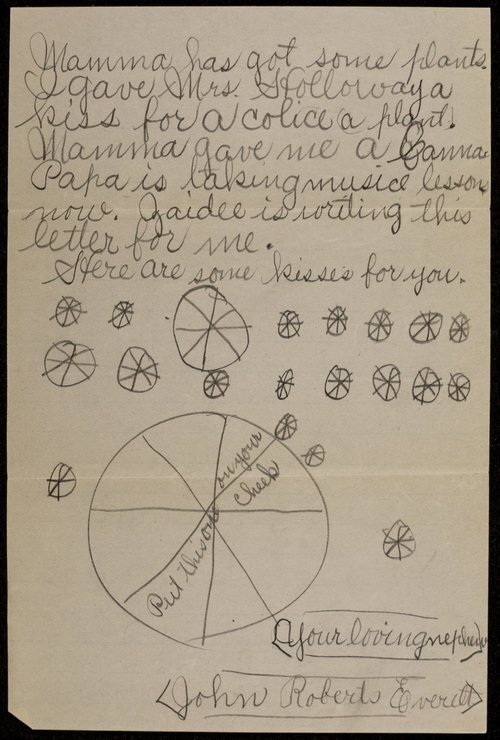 Mamma has got some plants.
I gave Mrs Holloway a
kiss for a colice a plant.
Mamma gave me a Canna.
Papa is taking musice lessons
now. Zaidee is writing this
letter for me.
Here are some kisses for you.
Put this one on your
cheek
(Your loving nephew)
(John Roberts Everett)